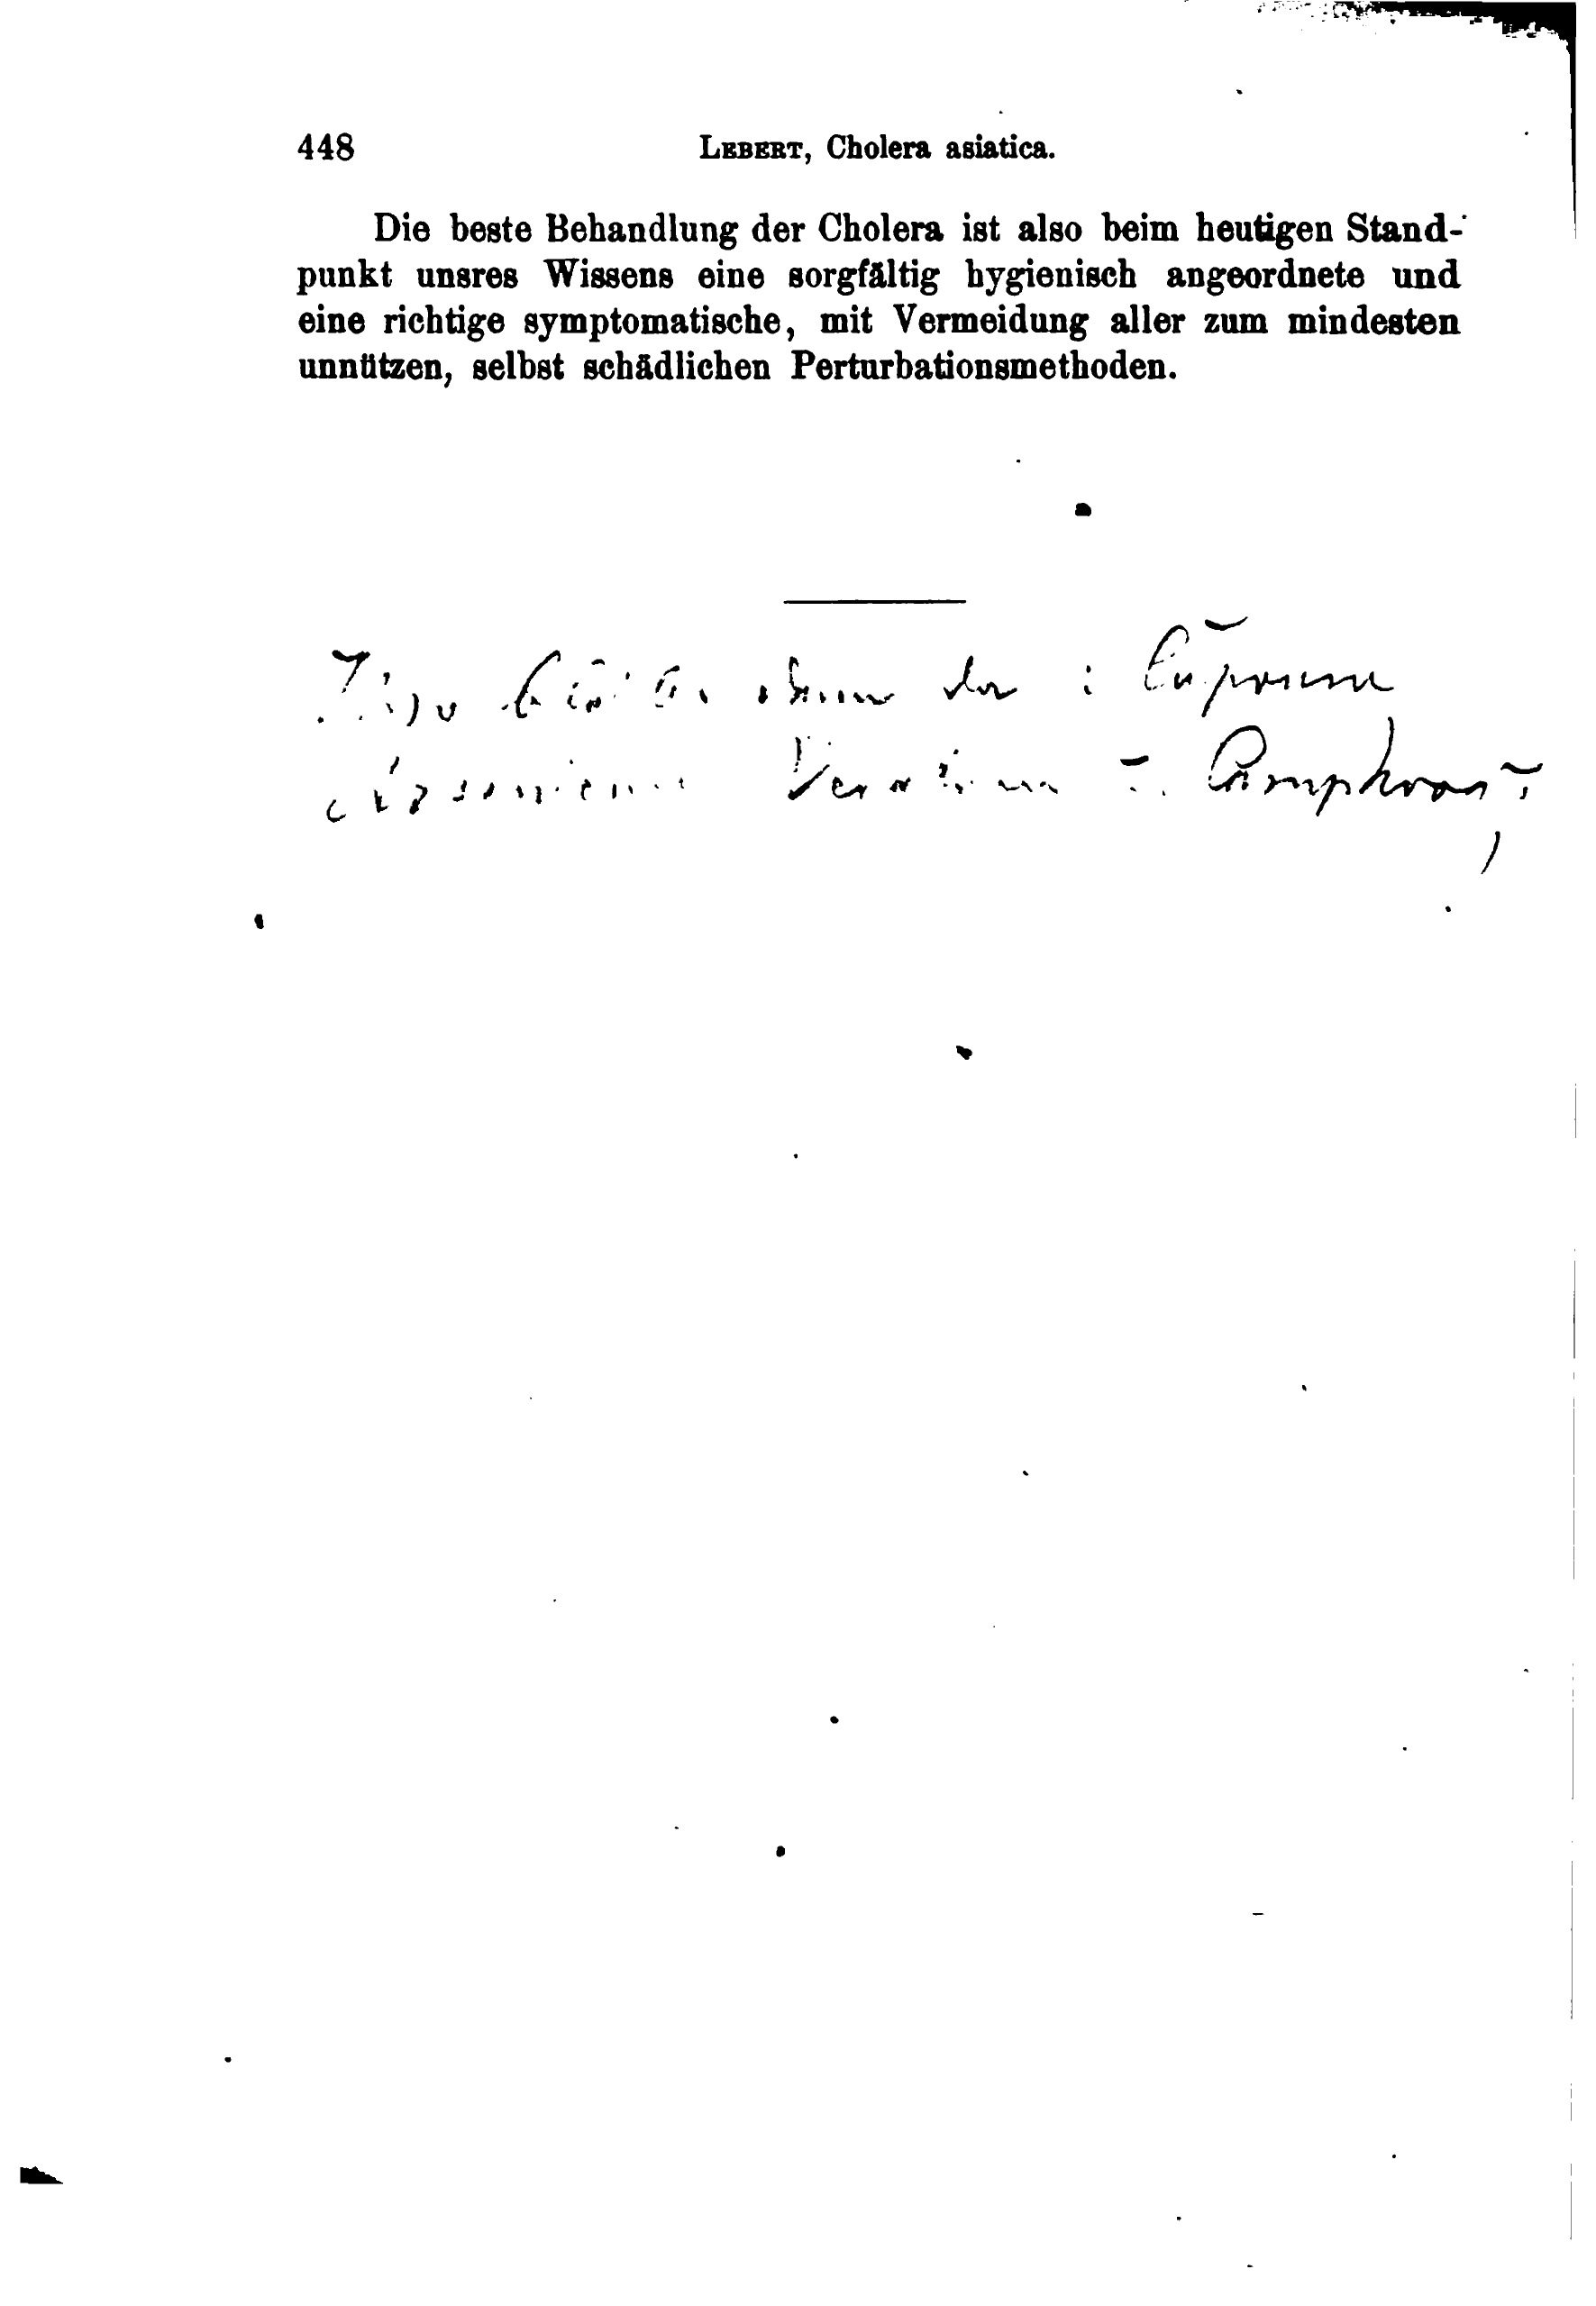 448 LEBERT, Cholera asiatica.
Die beste Behandlung der Cholera ist also beim heutigen Stand-
punkt unsres Wissens eine sorgfältig hygienisch angeordnete und
eine richtige symptomatische, mit Vermeidung aller zum mindesten
unnützen, selbst schädlichen Perturbationsmethoden.
: Cuprum
Veratrum